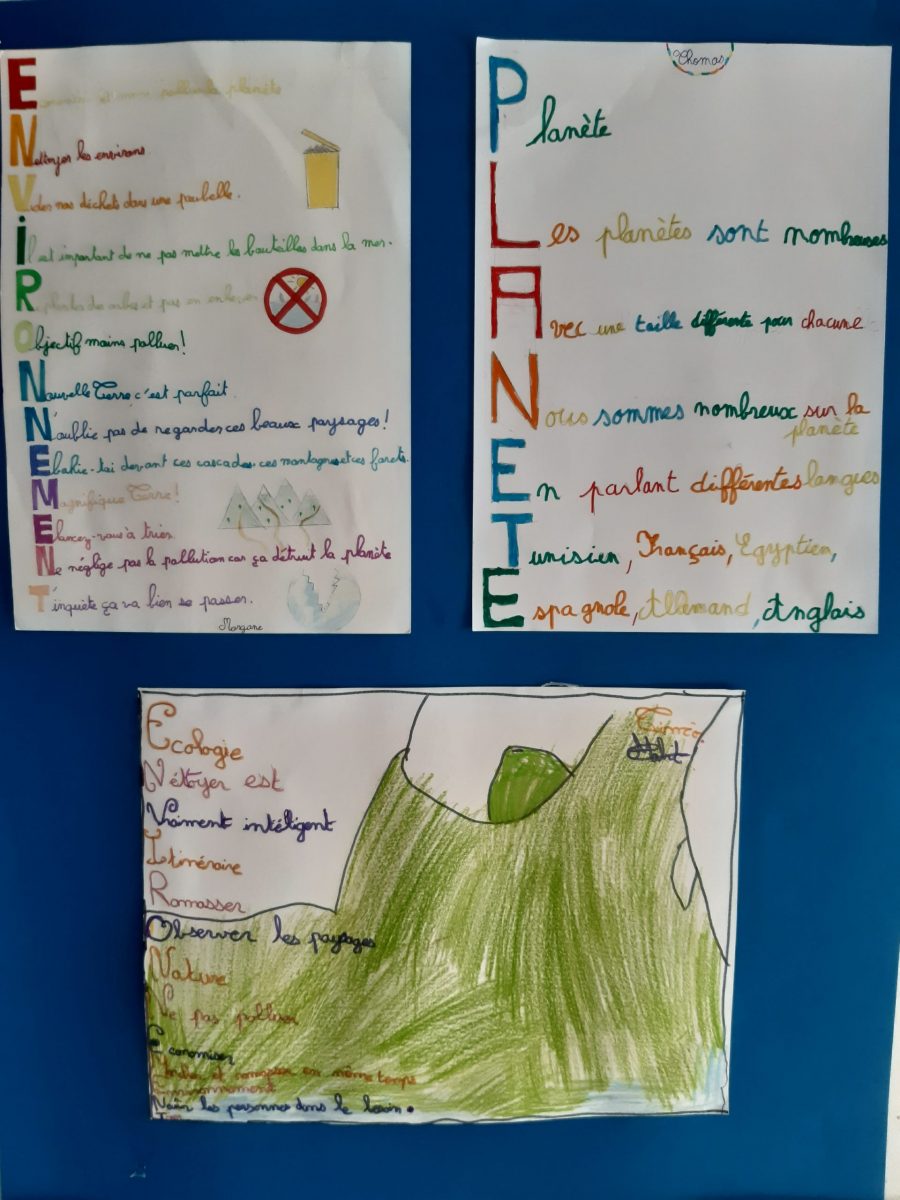 E et mon pollue la planète
Nettoyer les environs.
Vider nos déchets dans une poubelle.
Il est important de ne pas mettre les bouteilles dans la mer.
Replanter des arbres et pas en enlever
Objectif moins polluer!
Nouvelle Terre c'est parfait.
N'oublie pas de regarder ces beaux paysages!
Ebahie-toi devant ces cascades ces montagnes et ces forets.
Magnifique Terre!
Elancez-vous à trier.
Ne néglige pas la pollution car ça détruit la planète
T'inquiète ça va bien se passer.
Morgane
Thomas
Planète
Les planètes sont nombreuses
Avec une taille différente pour chacune
Nous sommes nombreux sur la
planète
En parlant différentes langues
Tunisien, Français, Egyptien,
Espagnole, Allemand, Anglais
Ecologie
Nétoyer est
Vraiment intéligent
Itinéraire
Ramasser
Observer les paysages
Nature
Ne pas polluer
Economiser
et ramasser en même temps
Environnement
Noùs les personnes dans le besoin.